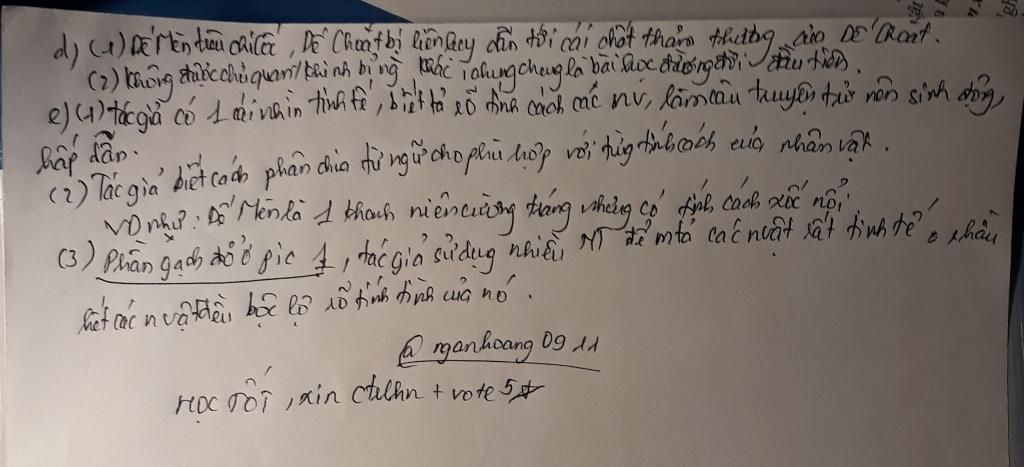 d) (1) Dế Mèn trêu chị Cốc, Dế Choắt bị liên lụy dẫn tới cái chết thảm thương của Dế Choắt.
(2) Không được chủ quan/khinh bỉ ng khác, chung là bài học đường đời đầu tiên.
e) (1) Tác giả có 1 cái nhìn tinh tế, biết tả rõ tính cách các nv, làm câu truyện trở nên sinh động,
hấp dẫn.
(2) Tác giả biết cách phân chia từ ngữ cho phù hợp với từng tính cách của nhân vật.
VD như: Dế Mèn là 1 thanh niên cường tráng nhưng có tính cách xốc nổi,
(3) Phần gạch đỏ ở pic 1, tác giả sử dụng nhiều NT để mtả các nvật rất tinh tế, hầu
hết các nvật đều bộc lộ rõ tính tình của nó.
@nganhoang0911
HỌC TỐT, xin ctlhn + vote 5